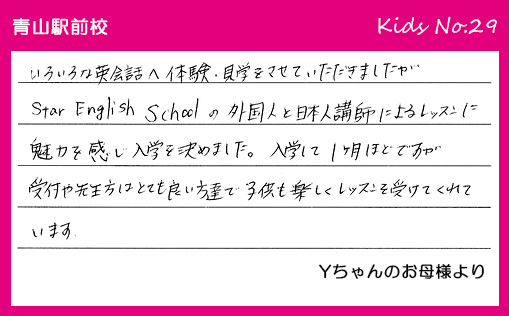 青山駅前校
Kids No.29
いろいろな英会話へ体験・見学をさせていただきましたが
Star English Schoolの外国人と日本人講師によるレッスンに
魅力を感じ入学を決めました。入学して1ヶ月ほどですが
受付や先生方はとても良い方達で子供も楽しくレッスンを受けてくれて
います
Yちゃんのお母様より